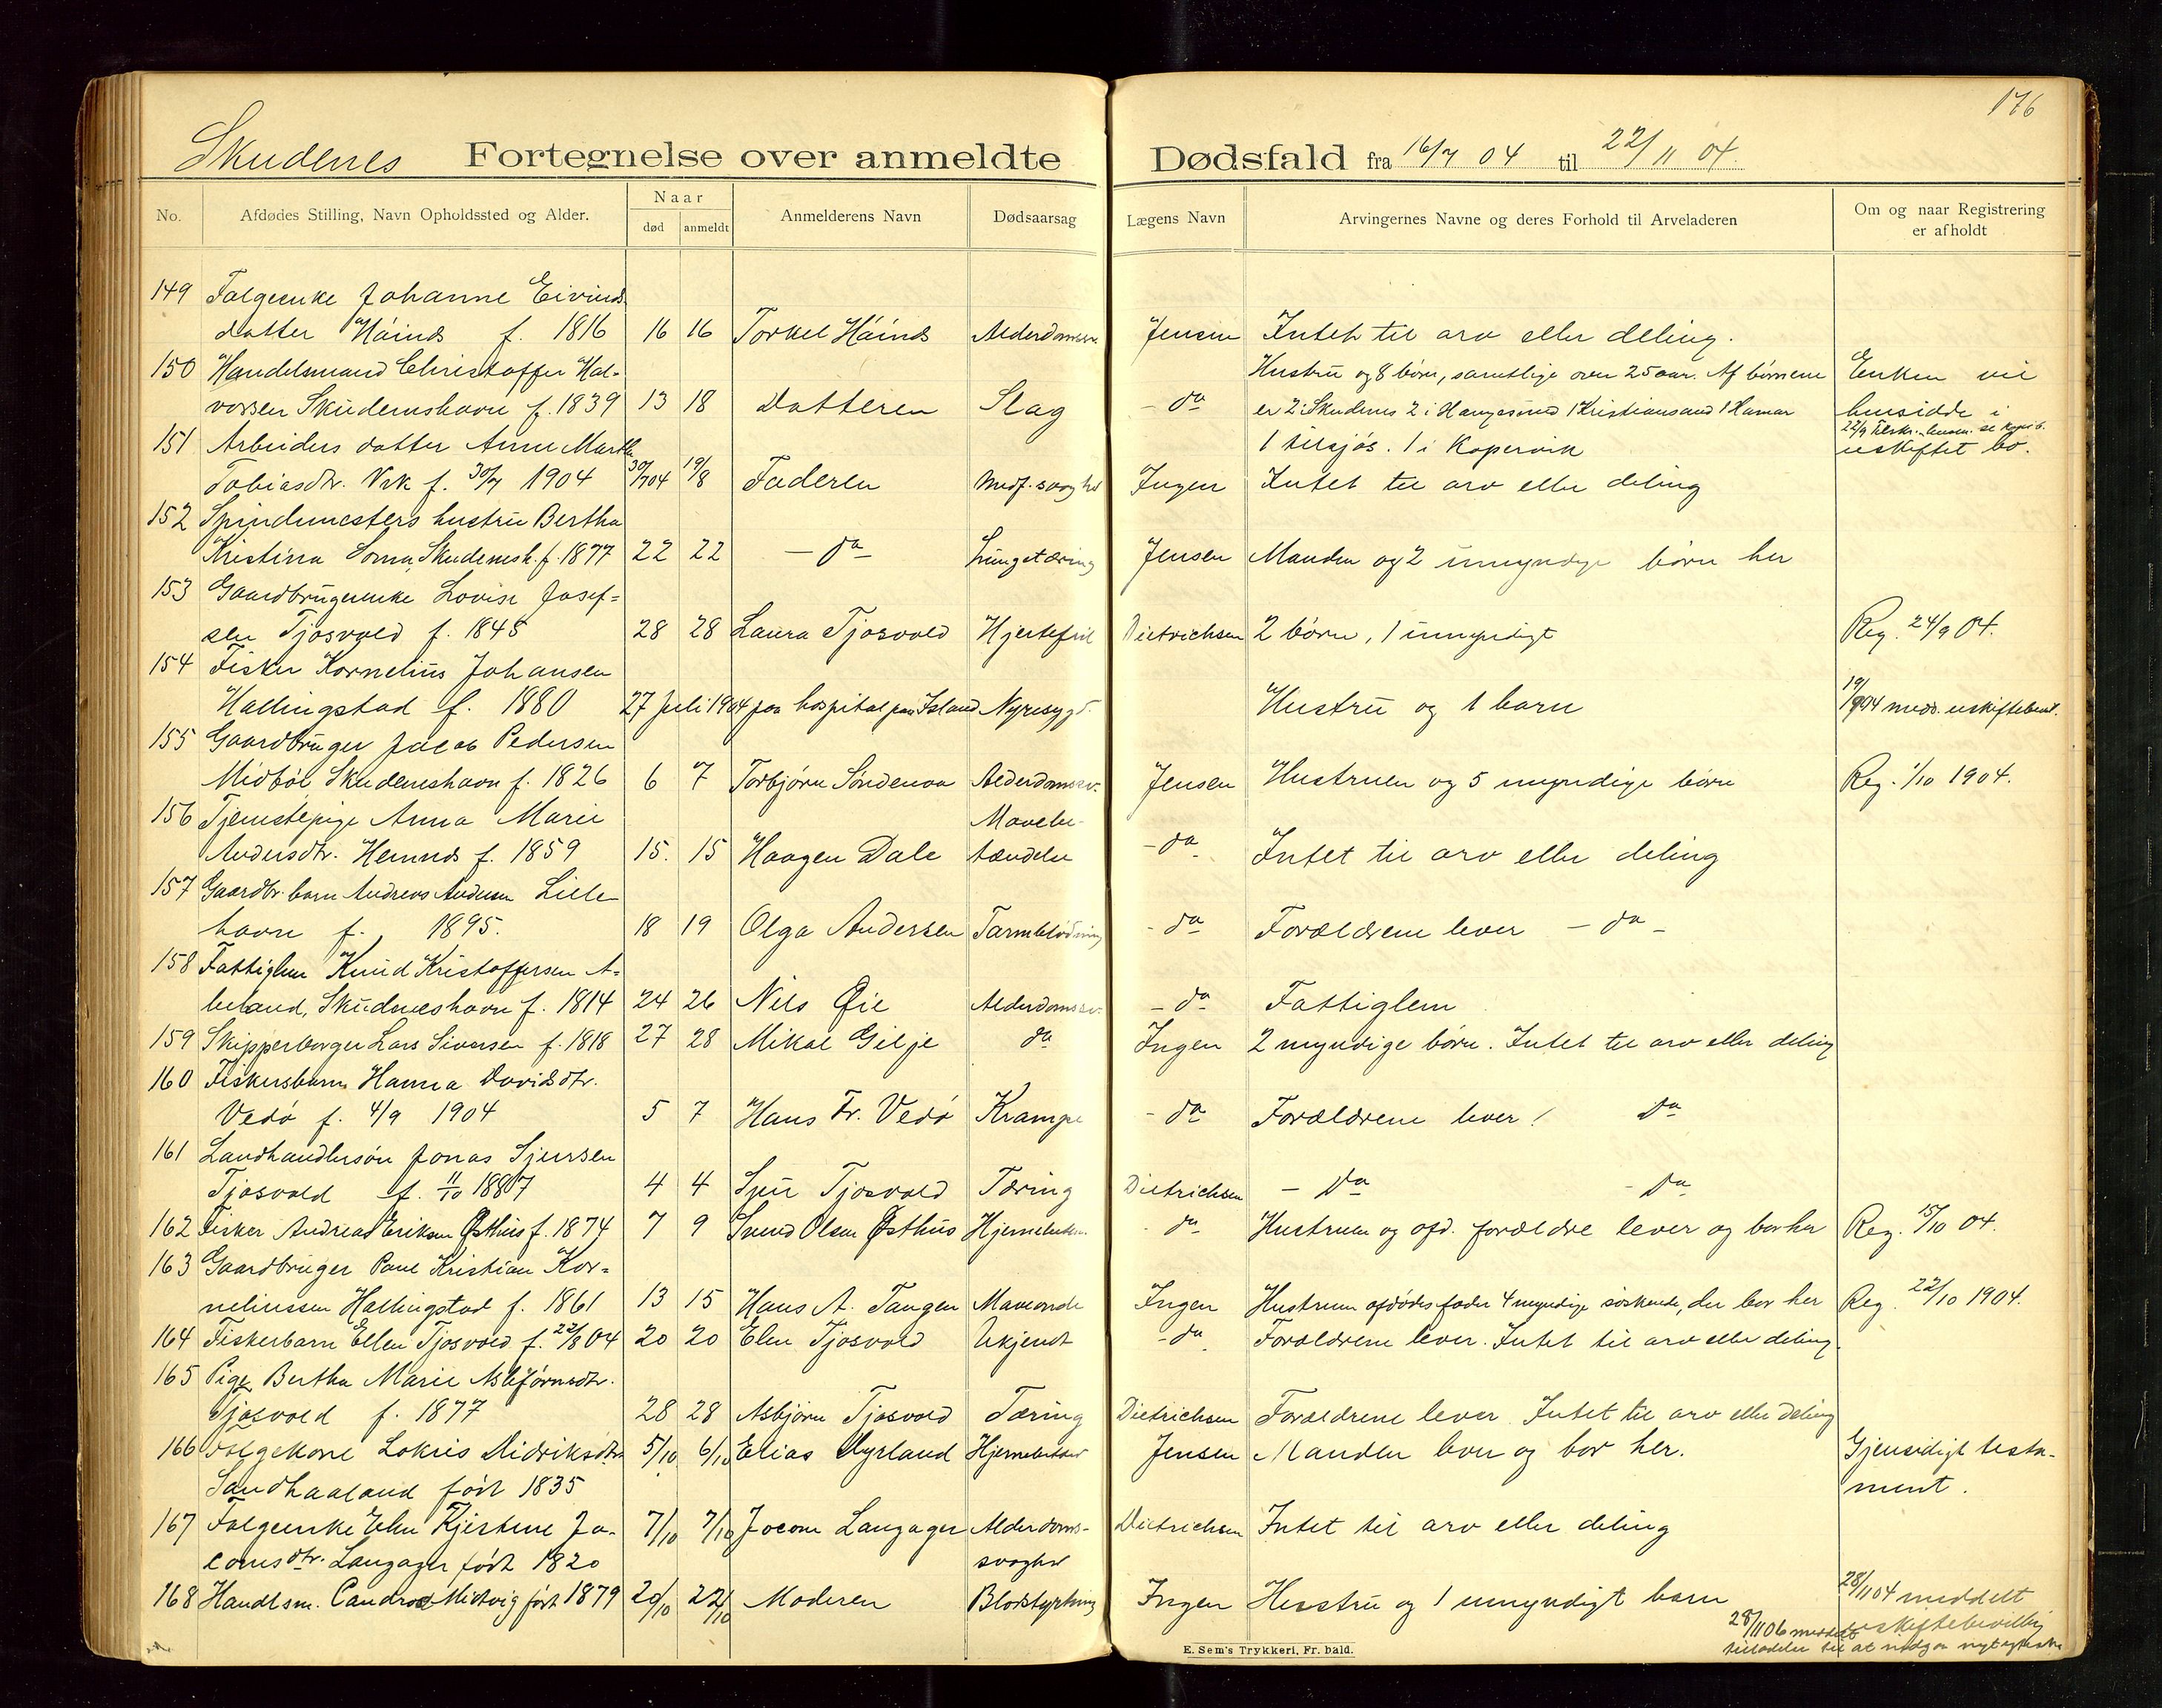 176
Skudenes Fortegnelse over anmeldte Dødsfald fra 16/7 04 til 22/11 04.
No. Afdødes Stilling, Navn Opholdssted og Alder. Naar død anmeldt Anmelderens Navn Dødsaarsag Lægens Navn Arvingernes Navne og deres Forhold til Arveladeren Om og naar Registrering er afholdt
149 Folgeenke Johanne Eivinds
datter Háinds f. 1816 16 16 Torkel Háinds Alderdomssv. Jensen Intet til arv eller deling.
150 Handelsmand Christoffer Hal-
vorsen Skudeneshavn f. 1839 13 18 Datteren Slag - do Hustru og 8 børn, samtlige over 25 aar. Af børnene Enken vil
er 2 i Skudenes 2 i Haugesund 1 Kristiansand 1 Hamar hensidde i
1 tilsjøs. 1 i Kopervik uskiftet bo.
151 Arbeiders datter Anne Martha
Tobiasdtr. Vik f. 30/7 1904 30/7 04 19/8 Faderen Medf. svaghed Ingen Intet til arv eller deling
152 Spindemesters hustru Bertha
Kristina Soma, Skudenesh. f. 1877 22 22 - do - Lungetæring Jensen Manden og 2 umyndige børn her
153 Gaardbrugerenke Lovise Josef-
sen Tjosvold f. 1845 28 28 Laura Tjosvold Hjertefeil Dietrichsen 2 børn, 1 umyndigt Reg. 24/9 04.
154 Fisker Kornelius Johansen
Hallingstad f. 1880 27 Juli 1904 paa hospital paa Island Nyresygd. Hustru og 1 barn 19/9 04 medd. uskiftebevil.
155 Gaardbruger Jacob Pedersen
Midbøe Skudeneshavn f. 1826 6 7 Torbjørn Søndenaa Alderdomssv. Jensen Hustruen og 5 myndige børn Reg. 1/10 1904.
156 Tjenestepige Anna Marie Mavebe-
Andersdtr. Hemnes f. 1859 15. 15 Haagen Dale tændelse - do - Intet til arv eller deling
157 Gaardbr. barn Andreas Andersen Lille
havn f. 1895. 18 19 Olga Andersen Tarmblødning - do Forældrene lever - do -
158 Fattiglem Knud Kristoffersen A-
beland, Skudeneshavn f. 1814 24 26 Nils Øie Alderdomssv. - do - Fattiglem
159 Skipperborger Lars Siversen f. 1818 27 28 Mikal Gilje do Ingen 2 myndige børn. Intet til arv eller deling
160 Fiskersbarn Hanna Davidsdtr.
Vedø f. 4/9 1904 5 7 Hans Fr. Vedø Krampe - do Forældrene lever! Do
161 Landhandlersøn Jonas Sjursen
Tjosvold f. 11/10 1887 4 4 Sjur Tjosvold Tæring Dietrichsen - Do - Do
162 Fisker Andreas Eriksen Østhus f. 1874 7 9 Svend Olsen Østhus Hjernebetæn. - do Hustruen og afd. forældre lever og bor her Reg. 15/10 04.
163 Gaardbruger Paul Kristian Kor-
neliussen Hallingstad f. 1861 13 15 Hans A. Tangen Maveonde Ingen Hustruen afdødes fader 4 myndige søskende, der bor her Reg. 22/10 1904.
164 Fiskerbarn Ellen Tjosvold f. 22/8 04 20 20 Elen Tjosvold Ukjendt - do - Forældrene lever. Intet til arv eller deling.
165 Pige Bertha Marie Asbjørnsdtr.
Tjosvold f. 1877 28 28 Asbjørn Tjosvold Tæring Dietrichsen Forældrene lever. Intet til arv eller deling
166 Folgekone Lokris Didriksdtr. 5/10 6/10 Elias Hyrland Hjernebetæn Jensen Manden lever og bor her. Gjensidigt testa-
Sandhaaland født 1835 ment.
167 Folgeenke Elen Kjerstine Ja- 7/10 7/10 Jocom Langager Alderdoms- Dietrichsen Intet til arv eller deling
comsdtr. Langager født 1820 svaghed
168 Handlsm. Midvig født 1879 20/10 22/10 Moderen Blodstyrtning Ingen Hustru og 1 umyndigt barn 28/11 04 meddelt
uskiftebevilling
28/11 06 meddelt
tilladelse til at indgaa nyt egteskab
E. Sem's Trykkeri, Fr. hald.